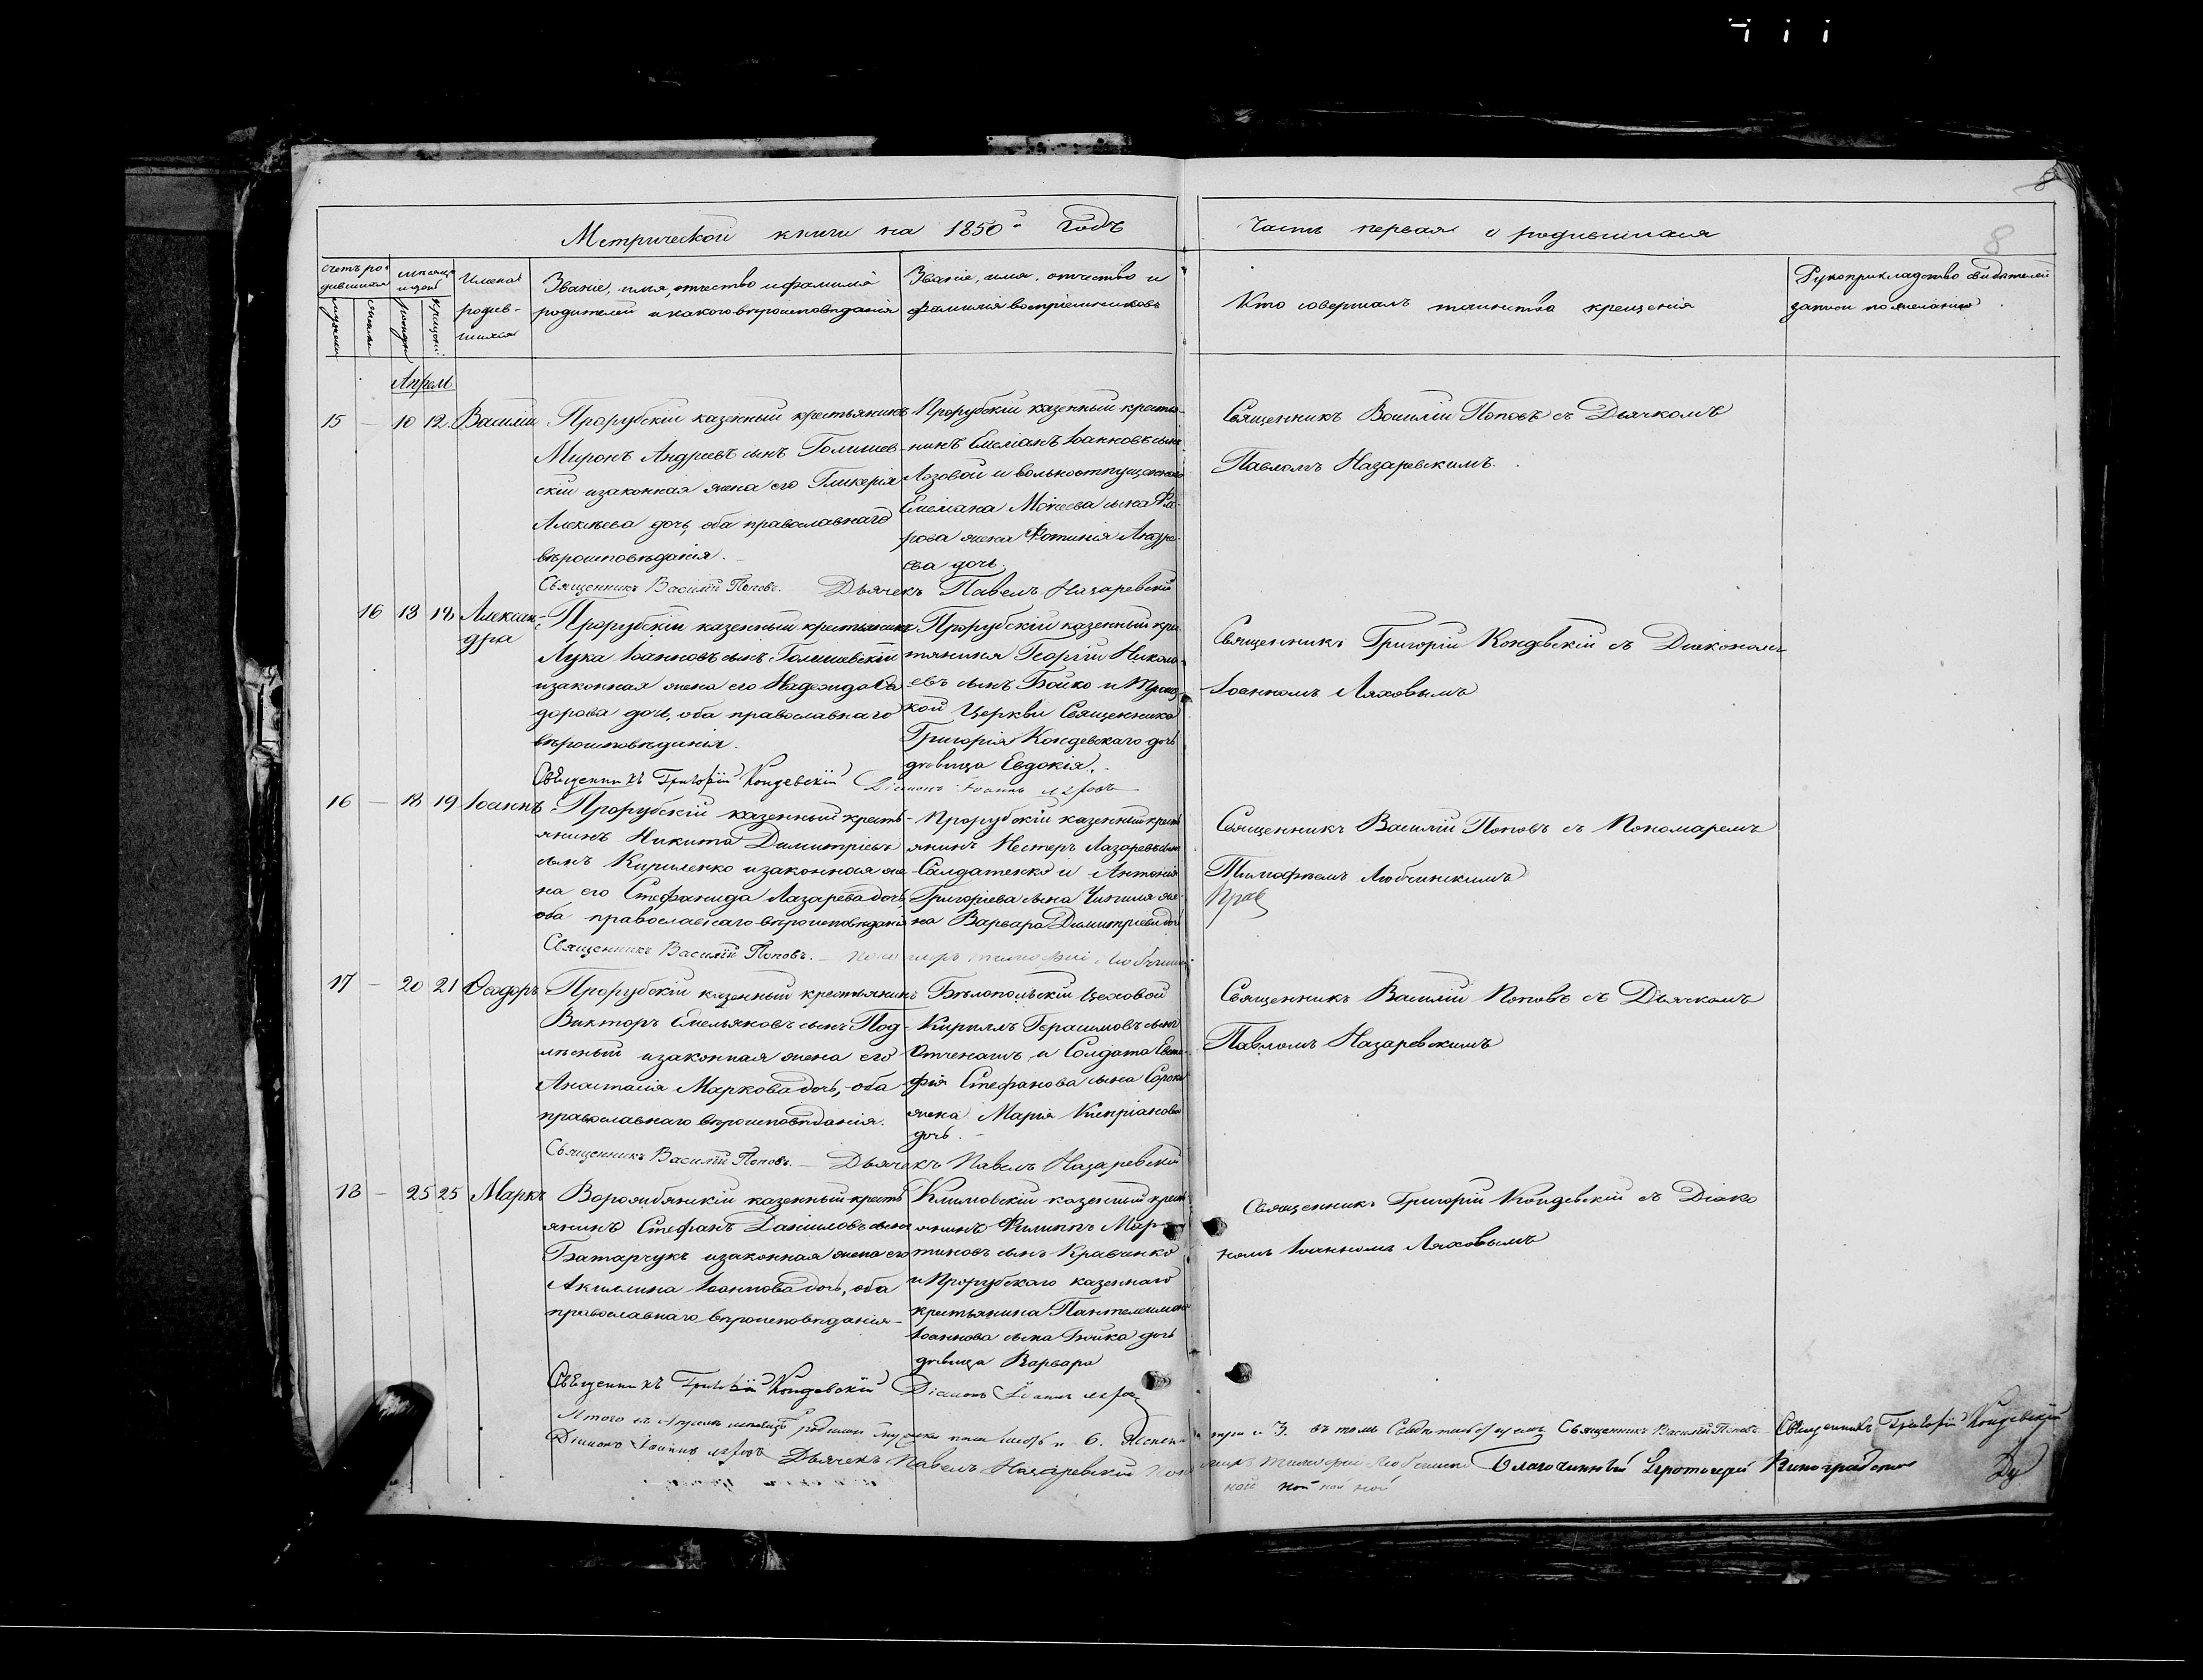 Метрической книги на 1850й Годъ
Часть первая о родившихся
8
Счетъ родившихся
мѣсяцъ и день
Имена родив-шихся
Званіе, имя, отчество и фамилія
родителей и какого вѣроисповѣданія
Званіе, имя, отчество и
фамилія воспріемниковъ
Кто совершалъ таинство крещенія
Рукоприкладство свидѣтелей
записи по желанію
Апрѣль
15 — 10 12. Василій
Прорубскій казенный крестьянинъ
Миронъ Андреевъ сынъ Голишев-
скій изаконная жена его Гликерія
Алексѣева дочь, оба православнаго
вѣроисповѣданія.
Прорубскій казенный крестья-
нинъ Емеліанъ Іоанновъ сынъ
Лозовой и вольноотпущеннаго
Емеліана Моисеева сына
рова жена Фотинія Андре-
ева дочь.
Священникъ Василій Поповъ съ Дьячкомъ
Павломъ Назаревскимъ.
Священникъ Василій Поповъ. Дьячекъ Павелъ Назаревскій
16 18 18 Алексан-
дра
Прорубскій казенный крестьянинъ
Лука Іоанновъ сынъ Голишевскій
изаконная жена его Надежда
дорова дочь, оба православнаго
вѣроисповѣданія.
Прорубскій казенный кре
тянинъ Георгій Никола-
евъ сынъ Бойко и
кой Церкви Священника
Григорія Кондевскаго дочь
дѣвица Евдокія.
Священникъ Григорій Кондевскій съ Діакономъ
Іоанномъ Ляховымъ
Священникъ Григорій Кондевскій Діаконъ Іоаннъ Ляховъ
16 — 18 19 Іоаннъ
Прорубскій казенный кресть-
янинъ Никита Димитріевъ
сынъ Кириленко изаконная же
на его Стефанида Лазарева дочь,
оба православнаго вѣроисповѣданія
Прорубскій казенный кресть
янинъ Нестеръ Лазаревъ сынъ
Салдатенко и Антонія
Григоріева сына Чипиля же-
на Варвара Димитріева дочь
Священникъ Василій Поповъ съ Пономаремъ
Тимофѣемъ Любчинскимъ
Священникъ Василій Поповъ.
17 — 20 21 Ѳеодоръ
Прорубскій казенный крестьянинъ
Викторъ Емельяновъ сынъ Под-
лѣсный изаконная жена его
Анастасія Маркова дочь, оба
православнаго вѣроисповѣданія.
Бѣлопольскій цеховой
Кириллъ Герасимовъ сынъ
Отченашъ и Солдата Евста-
фія Стефанова сына Сороки
жена Марія Кипріанова
дочь.
Священникъ Василій Поповъ съ Дьячкомъ
Павломъ Назаревскимъ
Священникъ Василій Поповъ. — Дьячекъ Павелъ Назаревскій
18 — 25 25 Маркъ
Ворожбянскій казенный кресть
янинъ Стефанъ Даниловъ сынъ
Батарчукъ изаконная жена его
Акилина Іоаннова дочь, оба
православнаго вѣроисповѣданія
Климовскій казенный крест
янинъ Филиппъ Мар-
тиновъ сынъ Кравченко
и Прорубскаго казеннаго
крестьянина Пантелеимона
Іоаннова сына Бойка дочь
дѣвица Варвара
Священникъ Григорій Кондевскій съ Діако
номъ Іоанномъ Ляховымъ
Священникъ Григорій Кондевскій Діаконъ Іоаннъ Ляховъ
Итого въ Апрѣлѣ мѣсяцѣ родилось мужеска пола шесть 6. Женска три 3. въ томъ свидѣтельствуемъ Священникъ Василій Поповъ. Священникъ Григорій Кондевскій
Діаконъ Іоаннъ Ляховъ Дьячекъ Павелъ Назаревскій Благочинный Протоіерей Виноградовъ